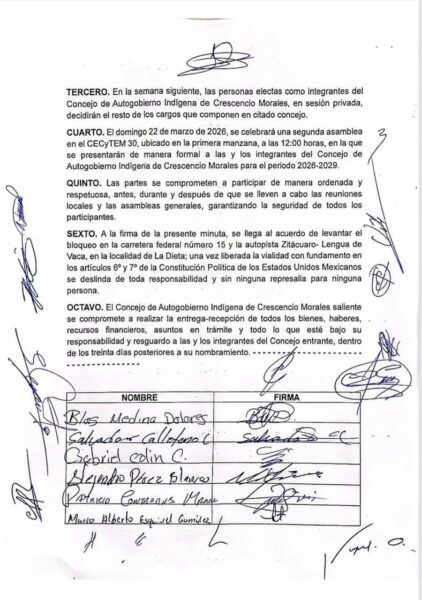 TERCERO. En la semana siguiente, las personas electas como integrantes del
Concejo de Autogobierno Indígena de Crescencio Morales, en sesión privada,
decidirán el resto de los cargos que componen en citado concejo.
CUARTO. El domingo 22 de marzo de 2026, se celebrará una segunda asamblea
en el CECyTEM 30, ubicado en la primera manzana, a las 12:00 horas, en la que
se presentarán de manera formal a las y los integrantes del Concejo de
Autogobierno Indígena de Crescencio Morales para el periodo 2026-2029.
QUINTO. Las partes se comprometen a participar de manera ordenada y
respetuosa, antes, durante y después de que se lleven a cabo las reuniones
locales y las asambleas generales, garantizando la seguridad de todos los
participantes.
SEXTO. A la firma de la presente minuta, se llega al acuerdo de levantar el
bloqueo en la carretera federal número 15 y la autopista Zitácuaro- Lengua de
Vaca, en la localidad de La Dieta; una vez liberada la vialidad con fundamento en
los artículos 6º y 7º de la Constitución Política de los Estados Unidos Mexicanos
se deslinda de toda responsabilidad y sin ninguna represalia para ninguna
persona.
OCTAVO. El Concejo de Autogobierno Indígena de Crescencio Morales saliente
se compromete a realizar la entrega-recepción de todos los bienes, haberes,
recursos financieros, asuntos en trámite y todo lo que esté bajo su
responsabilidad y resguardo a las y los integrantes del Concejo entrante, dentro
de los treinta días posteriores a su nombramiento.
NOMBRE FIRMA
Blas Medina Dolores
Salvador
Gabriel Colin C.
Alejandro Pérez Blanco
Patricio Contreras
Mario Alberto Esquivel